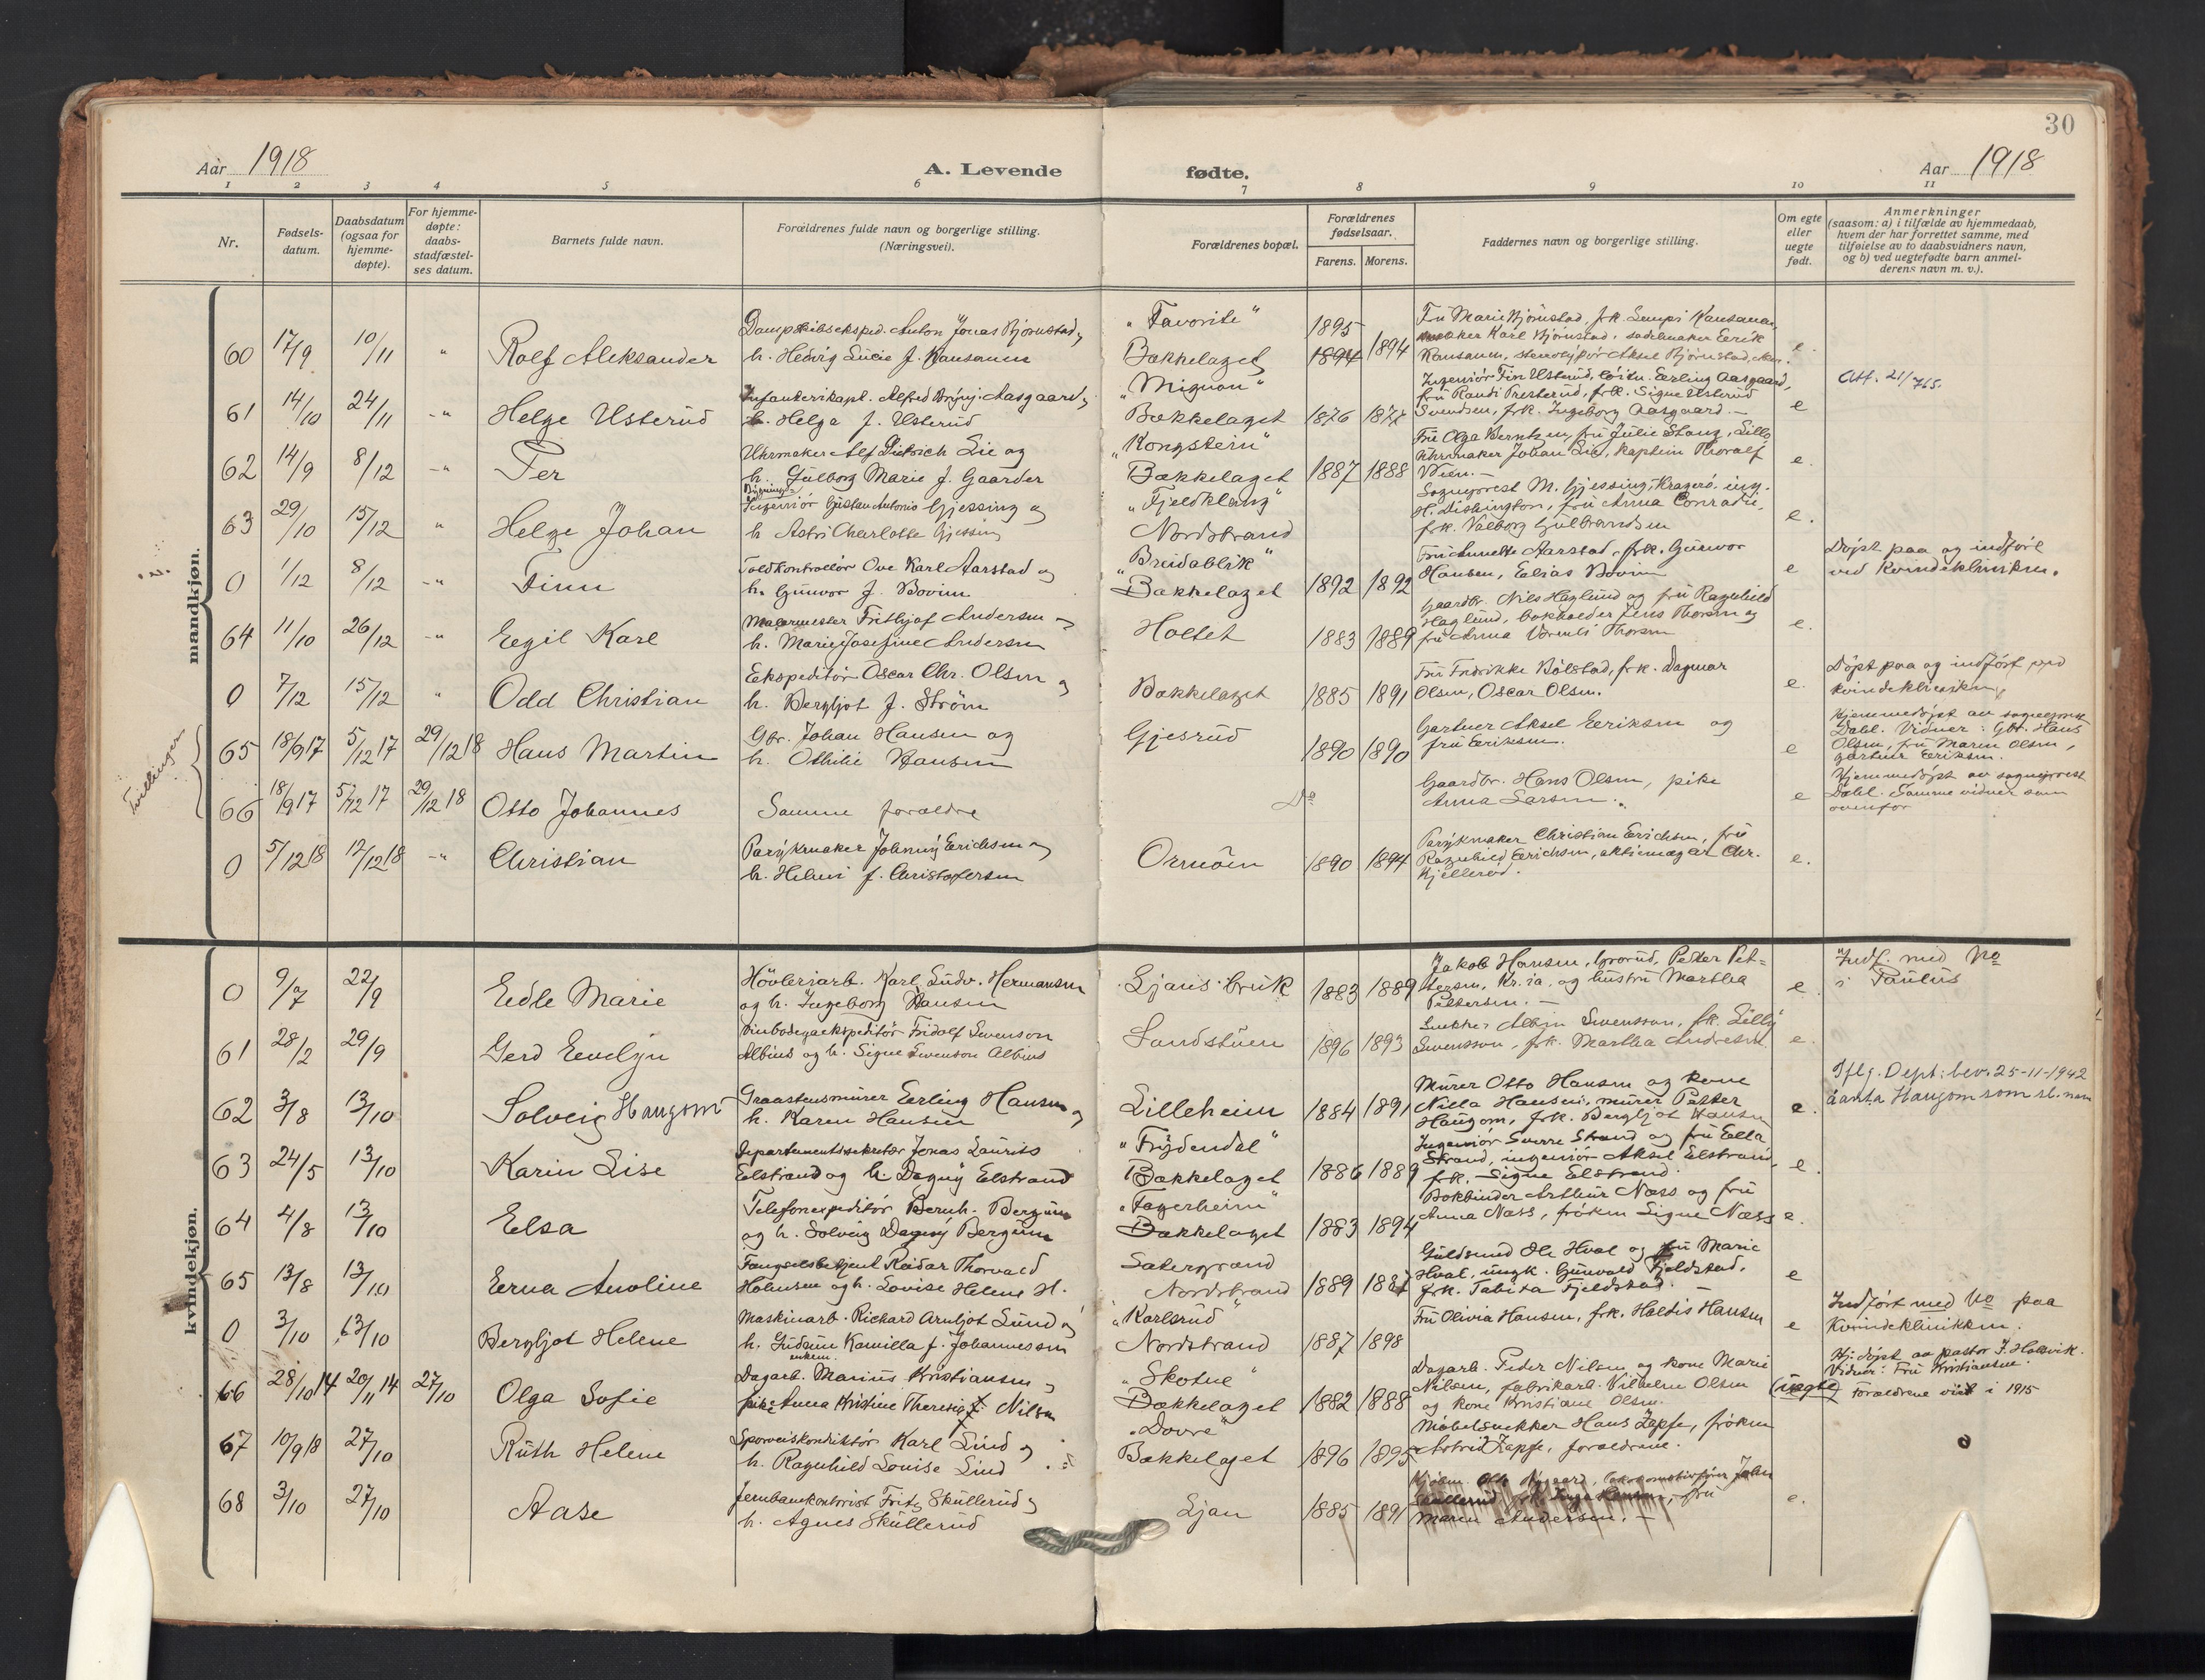 30
Aar 1918 A. Levende fødte. Aar 1918
1 2 3 4 5 6 7 8 9 10 11
Nr.
Fødsels-
datum.
Daabsdatum
(ogsaa for
hjemme-
døpte).
For hjemme-
døpte:
daabs-
stadfæstel-
ses datum.
Barnets fulde navn.
Forældrenes fulde navn og borgerlige stilling.
(Næringsvei).
Forældrenes bopæl.
Forældrenes
fødselsaar.
Farens. Morens.
Faddernes navn og borgerlige stilling.
Om egte
eller
uegte
født.
Anmerkninger
(saasom: a) i tilfælde av hjemmedaab,
hvem der har forrettet samme, med
tilføielse av to daabsvidners navn,
og b) ved uegtefødte barn anmel-
derens navn m. v.).
mandkjøn.
60 17/9 10/11 " Rolf Aleksander
Dampskibseksped. Anton Jonas Bjørnstad og
h. Hedvig Lucie f. Kansanen
"Favorite"
Bækkelaget
1895
1894 1894
Fru Marie Bjørnstad, frk. Lempi Kansanen,
Karl Bjørnstad, sadelmaker Eerik
Kansanen, Aksel Bjørnstad,
e.
61 14/10 24/11 -" Helge Usterud
Infanterikapt. Alfred Aasgaard og
h. Helga f. Usterud
"Mignon"
Bækkelaget 1876 1877
Ingeniør Finn Usterud, Erling Aasgaard,
fru Randi Presterud, frk. Signe Usterud
Svendsen, frk. Ingeborg Aasgaard. —
e
Att. 21/765.
62 14/9 8/12 -" Per
Uhrmaker Alf Dietrich Lie og
h. Gulborg Marie f. Gaarder
"Kongstein"
Bækkelaget 1887 1888
Fru Olga Berntzen, fru Julie Stang, Lillo
Uhrmaker Johan Lie, kaptein Thoralf
Wien. —
e.
63 29/10 15/12 " Helge Johan
Bygnings-
Ingeniør Gustav Antonio Gjessing og
h Astri Charlotte Gjessing
"Fjeldklang"
Nordstrand
Sogneprest M. Gjessing, Kragerø, ing.
H. Dishington, fru Anna Conradi,
frk. Valborg Gulbrandsen
e.
0 1/12 8/12 -" Finn
Toldkontrollør Ove Karl Aarstad og
h. Gunvor f. Bovim
"Breidablik"
Bækkelaget 1892 1892
Fru Annette Aarstad, frk. Gunvor
Hansen, Elias Bovim
e
Døpt paa og indført
ved Kvindeklinikken.
64 11/10 26/12 -" Egil Karl
Malermester Frithjof Andersen og
h. Marie Josefine Andersen
Holtet 1883 1889
Gaardbr. Nils Haglund og fru Ragnhild
Haglund, bokholder Jens Thorsen og
fru Anna Thorsen
e.
0 7/12 15/12 " Odd Christian
Ekspeditør Oscar Chr. Olsen og
h. Bergljot f. Strøm
Bækkelaget 1885 1891
Fru Fredrikke Bølstad, frk. Dagmar
Olsen, Oscar Olsen.
e.
Døpt paa og indført ved
kvindeklinikken
Tvillinger
65 18/9 17 5/12 17 29/12 18 Hans Martin
Gbr. Johan Hansen og
h. Othilie Hansen
Gjesrud 1890 1890
Gartner Aksel Eriksen og
fru Eriksen.
e
Hjemmedøpt av sogneprest
Dahl. Vidner: Gbr. Hans
Olsen, fru Maren Olsen,
gartner Eriksen.
66 18/9 17 5/12 17 29/12 18 Otto Johannes
Samme forældre
Do
Gaardbr. Hans Olsen, pike
Anna Larsen.
e
Hjemmedøpt av sogneprest
Dahl. Samme vidner som
ovenfor
0 5/12 18 12/12 18 -" Christian
Parykmaker Johnny Erichsen og
h. Helmi f. Christofersen
Ormøen 1890 1894
Parykmaker Christian Erichsen, fru
Ragnhild Erichsen, aktiemægler Chr.
Kjellerød.
e.
kvindekjøn.
0 9/7 22/9 Edle Marie
Høvleriarb. Karl Ludv. Hermansen
og h. Ingeborg Hansen
Ljans bruk 1883 1889
Jakob Hansen, Grorud, Peder Pet-
tersen, Kr.ia, og hustru Martha
Pettersen. —
e
Indf. med No
i Paulus
61 28/2 29/9 Gerd Evelyn
Vinbodegaekspeditør Fridolf Swenson
Albius og h. Signe Swenson Albius
Sandstuen 1896 1893
Snekker Albin Swensson, frk. Lilly
Swensson, frk. Martha Andresen
e.
62 3/8 13/10 Solveig Haugom
Graastensmurer Erling Hansen og
h. Karen Hansen
Lilleheim 1884 1891
Murer Otto Hansen og kone
Nilla Hansen, murer Petter
Haugom, frk. Bergljot Hansen
e.
Iflg. Dept: bev. 25-11-1942
å anta Haugom som sl. navn
63 24/5 13/10 Karin Lise
Departementssekretær Jonas Laurits
Elstrand og h. Dagny Elstrand
"Frydendal"
Bækkelaget 1886 1889
Ingeniør Sverre Strand og fru Ella
Strand, ingeniør Aksel Elstrand,
frk. Signe Elstrand.
e.
64 4/8 13/10 Elsa
Telefonexpeditør Bernh. Bergum
og h. Solveig Dagny Bergum
"Fagerheim"
Bækkelaget 1883 1894
Bokbinder Arthur Næss og fru
Anna Næss, frøken Signe Næss
e.
65 13/8 13/10 Erna Anoline
Fængselsbetjent Reidar Thorvald
Holmsen og h. Lovise Helene H.
Nordstrand 1889
Guldsmed Ole Hval og fru Marie
Hval, ungk. Gunvald Fjeldstad,
frk. Tabita Fjeldstad. —
e
0 3/10 13/10 Bergljot Helene
Maskinarb. Richard Arnljot Lund og
h. Gudrun Kamilla f. Johannessen
"Karlsrud"
Nordstrand 1887 1898
Fru Olivia Hansen, frk. Haldis Hansen
e
Indført med No paa
Kvindeklinikken.
66 28/10 14 20/11 14 27/10 Olga Sofie
enkem.
Dagarb. Marius Kristiansen og
pike Anna Kristine Theresia f. Nilsen
"Skotne"
Bækkelaget 1882 1888
Dagarb. Peder Nilsen og kone Marie
Nilsen, fabrikarb. Vilhelm Olsen
og kone Kristiane Olsen.
(uegte)
Hj. døpt av pastor J. Hallvik.
Vidner: Fru Kristiansen.
forældrene viet i 1915
67 10/9 18 27/10 Ruth Helene
Sporveiskonduktør Karl Lind og
h. Ragnhild Louise Lind
"Dovre"
Bækkelaget 1896 1895
Møbelsnekker Hans Zapfe, frøken
Astrid Zapfe, forældrene.
68 3/10 27/10 Aase
Jernbanekontorist Fritz Skullerud og
h. Agnes Skullerud
Ljan 1885 1891
Kjøbm. Otto Nygaard, lokomotivfører John
Skullerud, frk. Inga Hansen, fru
Maren Andersen. —
e.